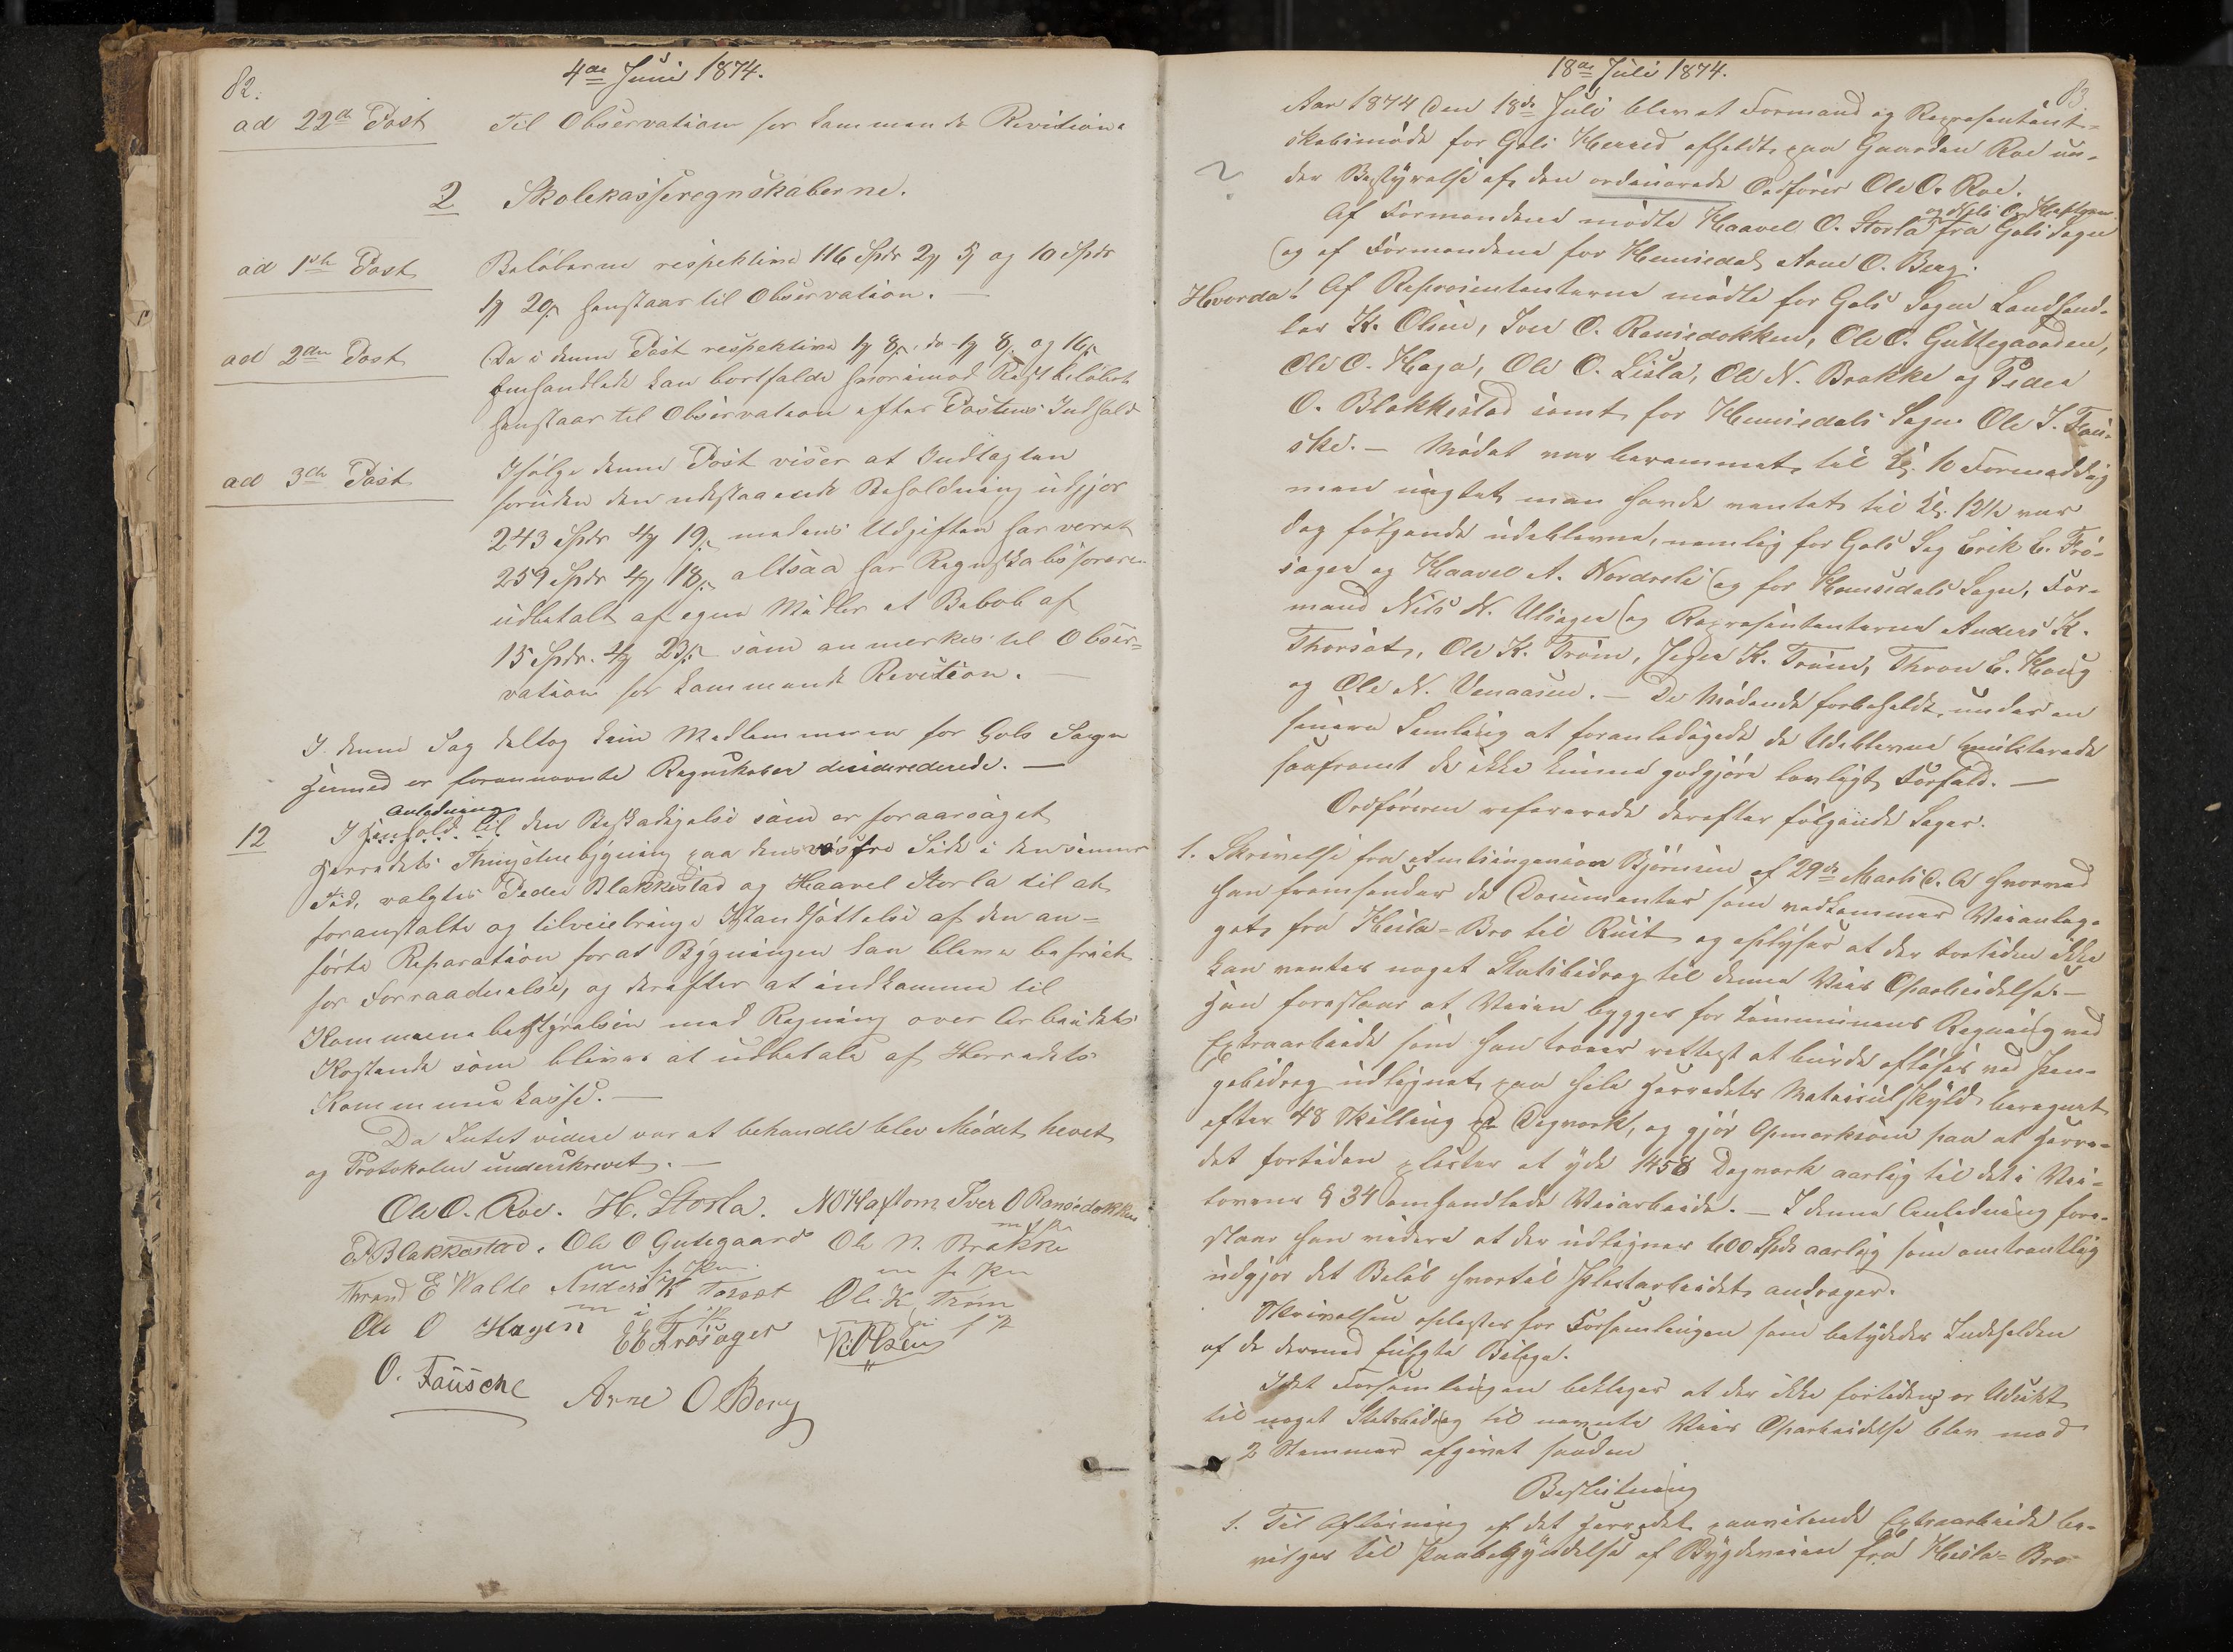 82.
4de Juni 1874.
ad 22de Post Til Observation for kommende Revision.
2 Skolekasseregnskaberne.
ad 1ste Post Beløbene respektive 116 Spdr 2 5 og 10 Spdr
1 20 henstaar til Observation. —
ad 2den Post Da i denne Post respektive 8 8 og 16
omhandlede kan bortfalde hvorimod Rest beløbet
henstaar til Observation efter Postens Indhold
ad 3de Post Ifølge denne Post viser at Indtægten
foruden den udestaaende Beholdning udgjør
243 Spdr 4 19 medens Udgiften har været
259 Spdr 4 18 altsaa har Regnskabsføreren
udbetalt af egne Midler et Beløb af
15 Spdr. 4 23 som anmerkes til Obser-
vation for kommende Revision. —
I denne Sag deltog kun Medlemmerne for Gols Sogn
hermed er forannævnte Regnskaber deciderede. —
Anledning
12 I Henhold til den Beskadigelse som er foraarsaget
Herredets Thingstuebygning paa dens vestre Side i den senere
Tid, valgtes Peder Blakkestad og Haavel Storla til at
foranstalte og tilveiebringe Istandsættelse af den an-
førte Reparation for at Bygningen kan blive befriet
for Forraadnelse, og derefter at indkomme til
Kommunebestyrelsen med Regning over Arbeidets
Kostende som bliver at udbetale af Herredets
Kommunekasse. —
Da Intet videre var at behandle blev Mødet hevet
og Protokolen underskrevet. —
Ole O. Roe. H. Storla. NO Haftom Iver O Ransedokken
P Blakkestad. Ole O Gutegaard Ole N. Brakke
Thrand E Walde Anders K Torset Ole K. Trøim
Ole O Hagen EE Frøsager K. Olsen
O. Fausche Arne O Berg
18de Juli 1874.
83.
Aar 1874 den 18de Juli blev et Formand og Repræsentant-
skabsmøde for Gols Herred afholdt paa Gaarden Roe un-
der Bestyrelse af den ordinerede Ordfører Ole O. Roe.
og Nils O. Haftom
Af Formændene mødte Haavel O. Storla fra Gols Sogn
og af Formændene for Hemsedal Arne O. Berg.
Hvorda! Af Repræsentanterne mødte for Gols Sogn Landhand-
ler K. Olsen, Iver O. Ransedokken, Ole O. Guttegaarden,
Ole O. Haga, Ole O. Lisla, Ole N. Brakke og Peder
O. Blakkestad samt for Hemsedals Sogn Ole T. Fau-
ske. — Mødet var berammet til Kl. 10 Formiddag
men uagtet man havde ventet til Kl. 12½ var
dog følgende udeblevne, nemlig for Gols Sogn Erik E. Frø-
sager og Haavel A. Nordreli og for Hemsedals Sogn, For-
mand Nils N. Ulsager og Repræsentanterne Anders K.
Thorset, Ole K. Trøim, K. Trøim, Thron E. Haug
og Ole N. Venaasen. — De Mødende forbeholdt, under en
senere Samling at foranledigede de Udeblevne mulkterede
saafremt de ikke kunne godgjøre lovligt Forfald. —
Ordføreren refererede derefter følgende Sager.
1. Skrivelse fra Amtsingeniør Bjørnsen af 29de Marts d. A. hvorved
han fremsender de Documenter som vedkommer Veianlæg-
get fra Heisla-Bro til Rust og oplyser at der fortiden ikke
kan ventes noget Statsbidrag til denne Veis Oparbeidelse. —
Han foreslaar at Veien bygges for Kommunens Regning ved
Extraarbeide som han troer rettest at burde afløses ved Pen-
gebidrag udlignet paa hele Herredets Matriculskyld beregnet
efter 48 Skilling pr Dagverk, og gjør opmerksom paa at Herre-
det fortiden plikter at yde 1458 Dagverk aarlig til det i Vei-
lovens § 34 omhandlede Veiarbeide. — I denne Anledning fore-
slaar han videre at der udlignes 600 Spdr aarlig som omtrentlig
udgjør det Beløb hvortil Pligtarbeidet andrager.
Skrivelsen oplæstes for Forsamlingen som betydedes Indholden
af de dermed fulgte Bilage.
Idet Forsamlingen beklager at der ikke fortiden er Udsikt
til noget Statsbidrag til nævnte Veis Oparbeidelse blev mod
2 Stemmer afgivet saadan
Beslutning
1. Til Afløsning af det Herredet paahvilende Extraarbeide be-
vilges til Paabegyndelse af Bygdeveien fra Heisla-Bro